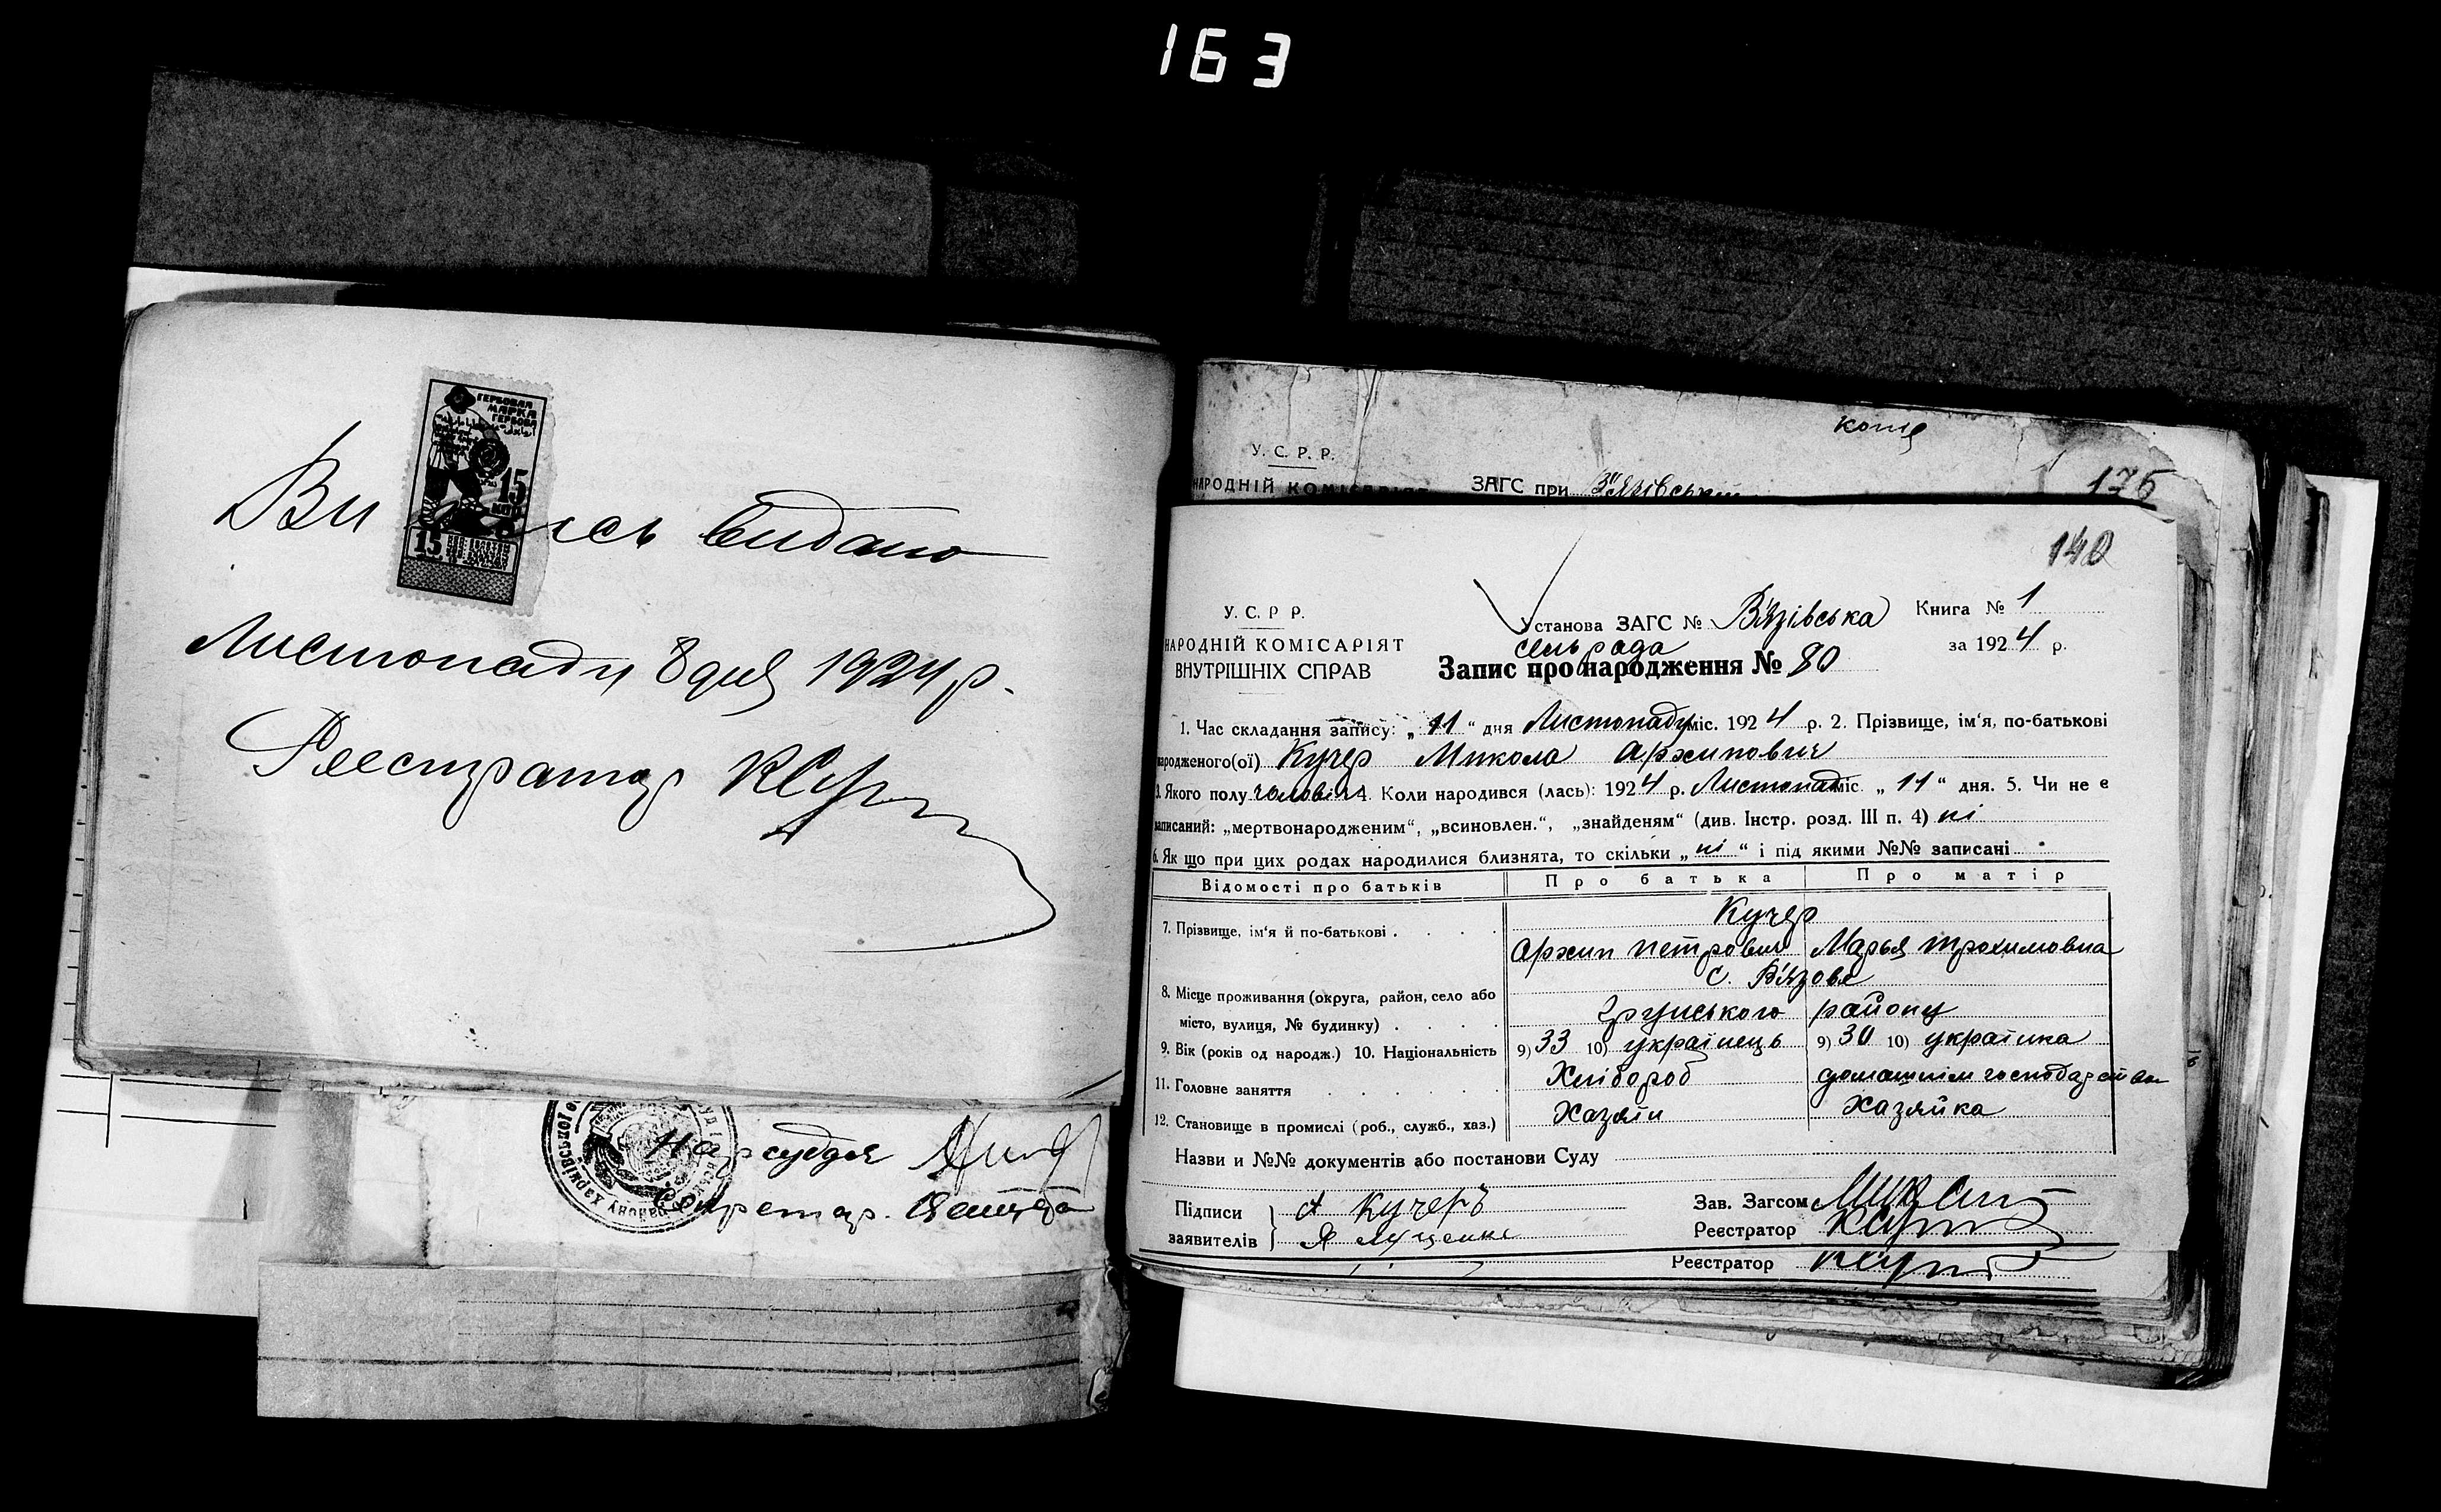 163
ГЕРБОВАЯ
МАРКА
ГЕРБОВА
15
15
Ви сь видано
Листопаду 8 дня 1924 р.
Реестратор
Нарсуддя
Секретар
конія
У. С. Р. Р.
НАРОДНІЙ КОМІСАРІЯТ ЗАГС при Вʼязівській
176
140
У. С. Р Р.
НАРОДНІЙ КОМІСАРІЯТ
ВНУТРІШНІХ СПРАВ
Установа ЗАГС № Вʼязівська Книга № 1
сельрада за 1924 р.
Запис про народження № 80
1. Час складання запису: „11“ дня Листопаду міс. 1924 р. 2. Прізвище, імʼя, по-батькові
народженого(ої) Кучер Микола Архипович
3. Якого полу чоловіч 4. Коли народився (лась): 1924 р. Листопад міс. „11“ дня. 5. Чи не є
записаний: „мертвонародженим“, „всиновлен.“, „знайденям“ (див. Інстр. розд. III п. 4) ні
6. Як що при цих родах народилися близнята, то скільки „ні“ і під якими №№ записані
Відомості про батьків Про батька Про матір
Кучер
7. Прізвище, імʼя й по-батькові Архип Петрович Марья Трохимовна
с. Вʼязове
8. Місце проживання (округа, район, село або
місто, вулиця, № будинку) Грунського району
9. Вік (років од народж.) 10. Національність 9) 33 10) українець 9) 30 10) українка
11. Головне заняття Хлібороб домашнім господарством
12. Становище в промислі (роб., служб., хаз.) Хазяїн Хазяйка
Назви и №№ документів або постанови Суду
Підписи А Кучеръ Зав. Загсом
заявителів Я Лущенко Реєстратор
Реєстратор